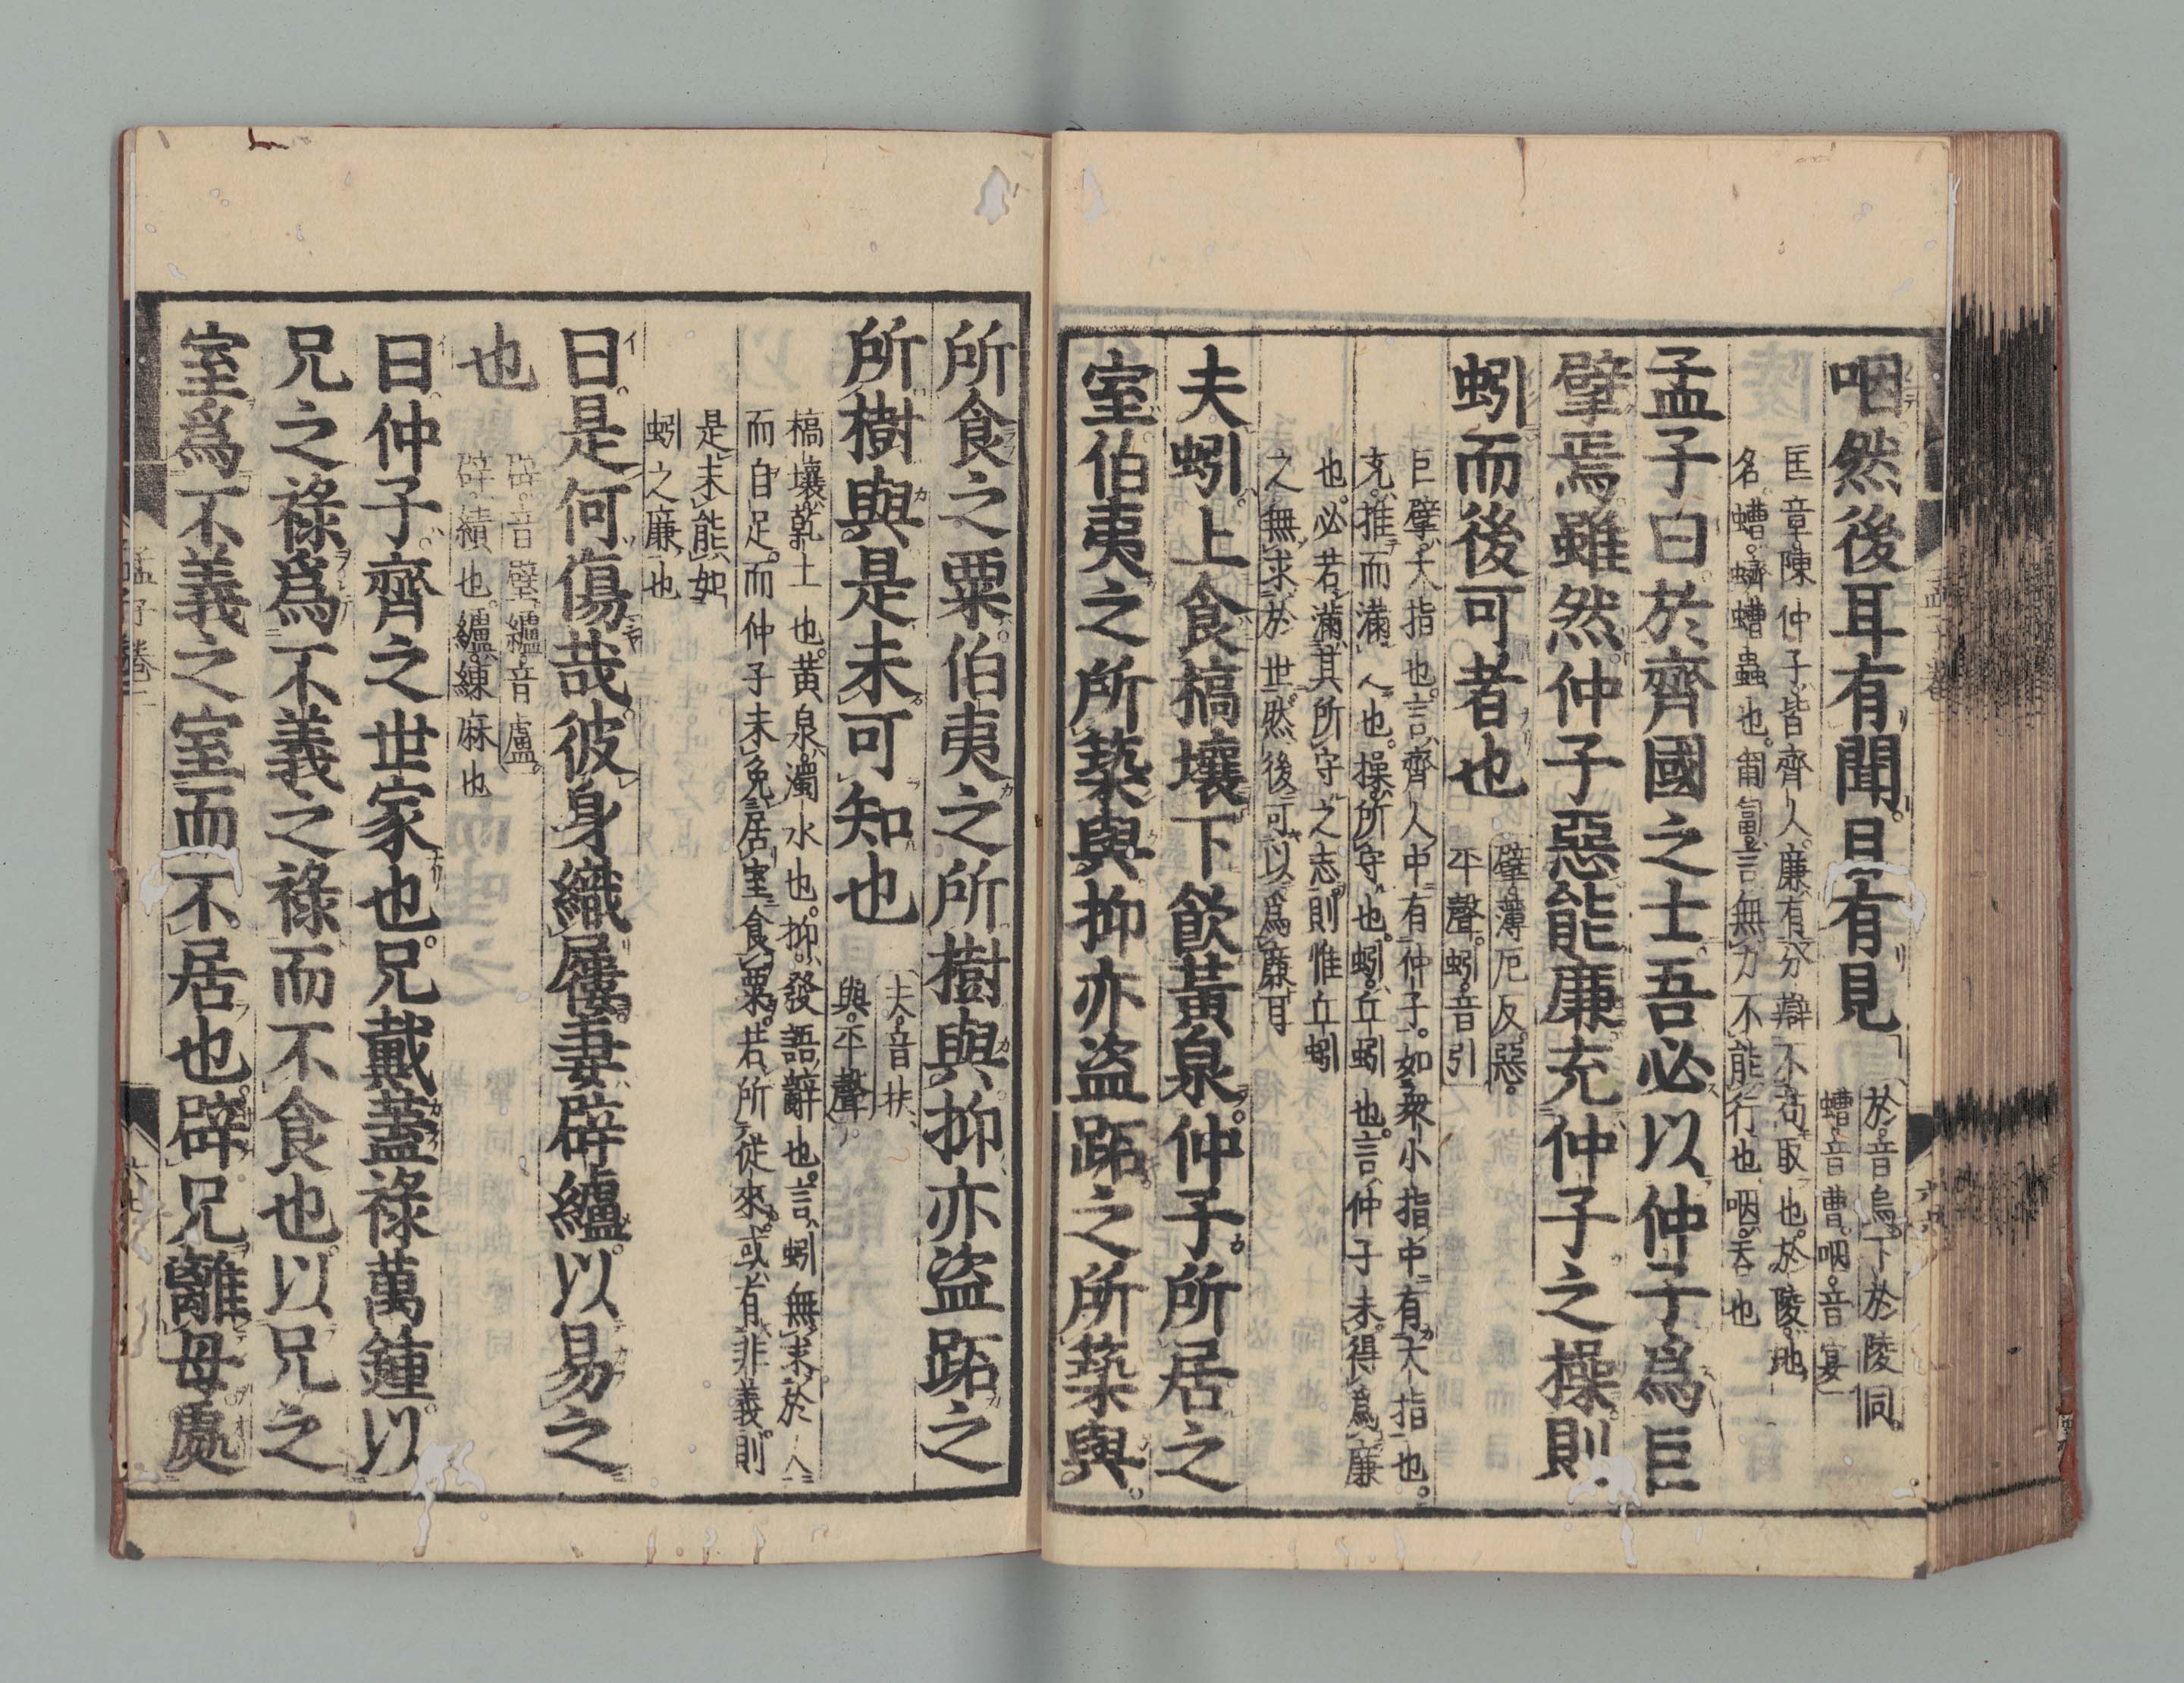 咽然後耳有聞目有見
於音烏下於陵同
螬音曹咽音宴
匡章陳仲子皆齊人廉有分辯不苟取也於陵地
名螬蠐螬蟲也匍匐言無力不能行也咽吞也
孟子曰於齊國之士吾必以仲子爲巨
擘焉雖然仲子惡能廉充仲子之操則
蚓而後可者也
擘薄厄反惡
平聲蚓音引
巨擘大指也言齊人中有仲子如衆小指中有大指也
充推而滿之也操所守也蚓丘蚓也言仲子未得爲廉
也必若滿其所守之志則惟丘蚓
之無求於世然後可以爲廉耳
夫蚓上食槁壤下飲黃泉仲子所居之
室伯夷之所築與抑亦盜跖之所築與
所食之粟伯夷之所樹與抑亦盜跖之
所樹與是未可知也
夫音扶
與平聲
槁壤乾土也黃泉濁水也抑發語辭也言蚓無求於人
而自足而仲子未免居室食粟若所從來或有非義則
是未能如
蚓之廉也
曰是何傷哉彼身織屨妻辟纑以易之
也
辟音璧纑音盧
辟績也纑練麻也
曰仲子齊之世家也兄戴蓋祿萬鍾以
兄之祿爲不義之祿而不食也以兄之
室爲不義之室而不居也辟兄離母處